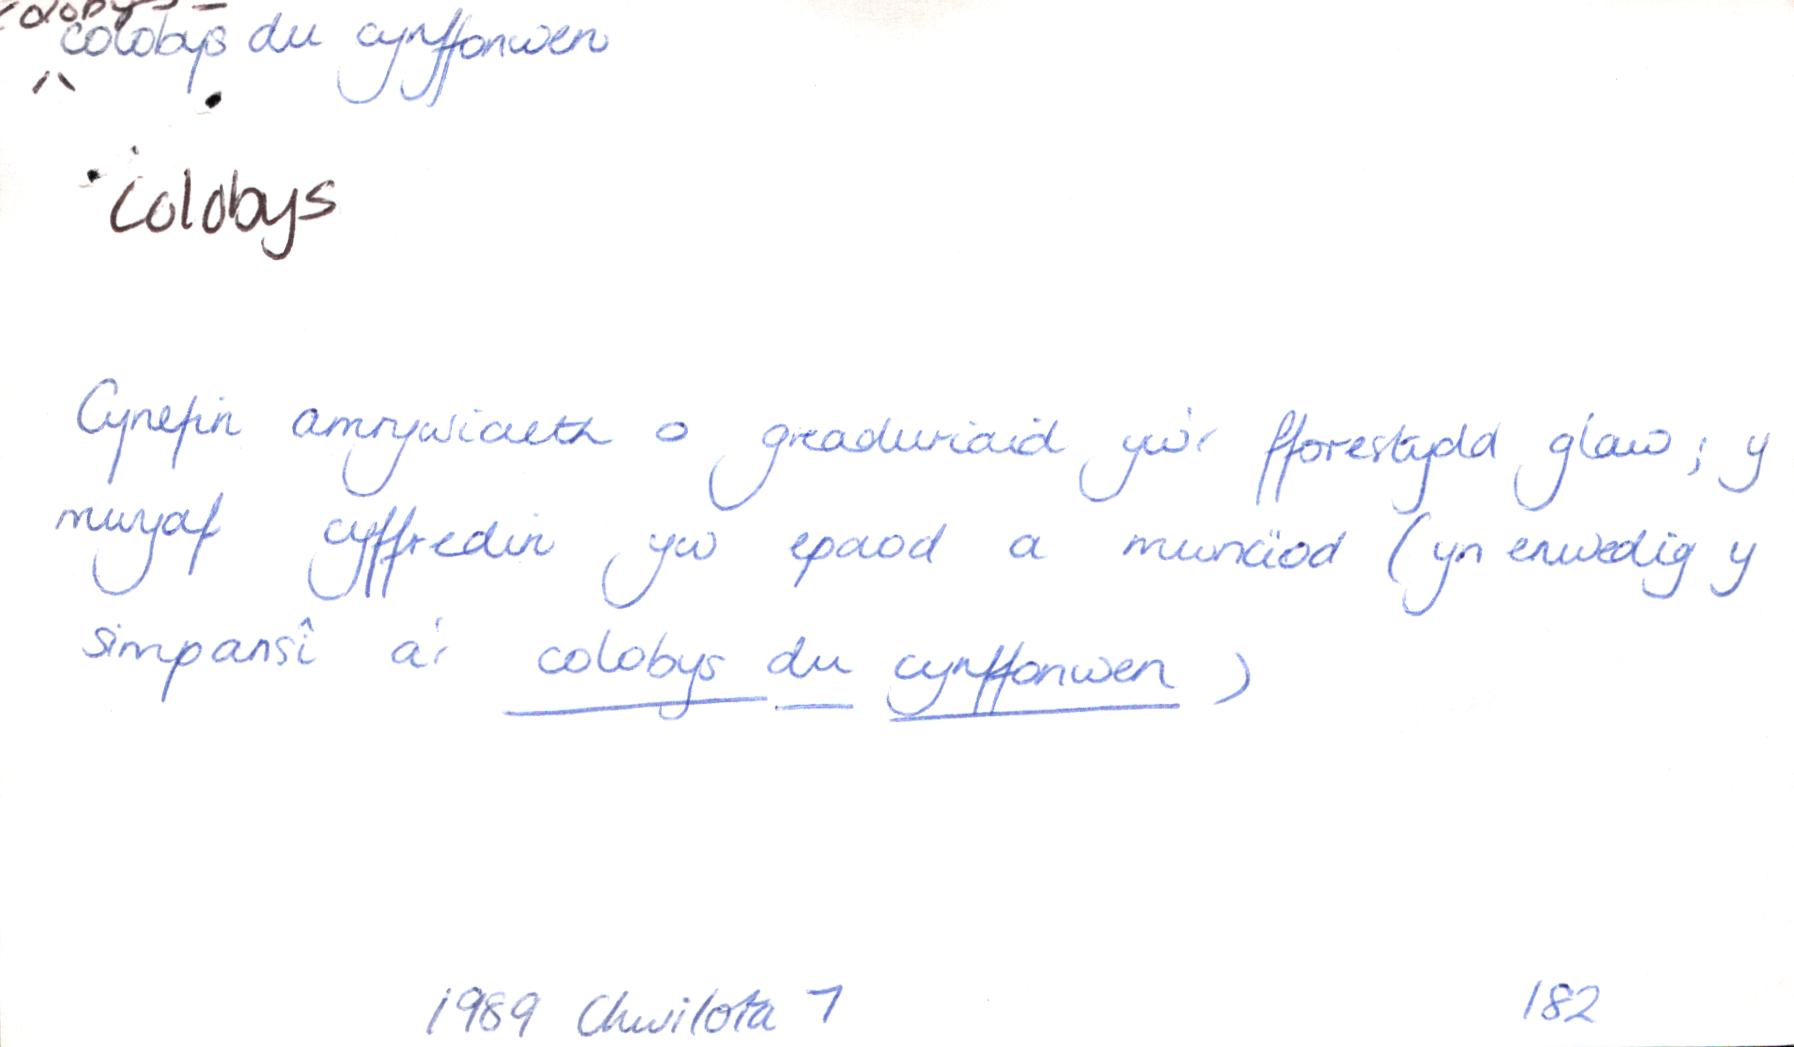 colobys du cynffonwen
Colobys
Cynefin amrywiaeth o greaduriaid yw'r fforestydd glaw; y
mwyaf cyffredin yw epaod a mwncïod (yn enwedig y
simpansî a'r colobys du cynffonwen)
1989 Chwilota 7 182